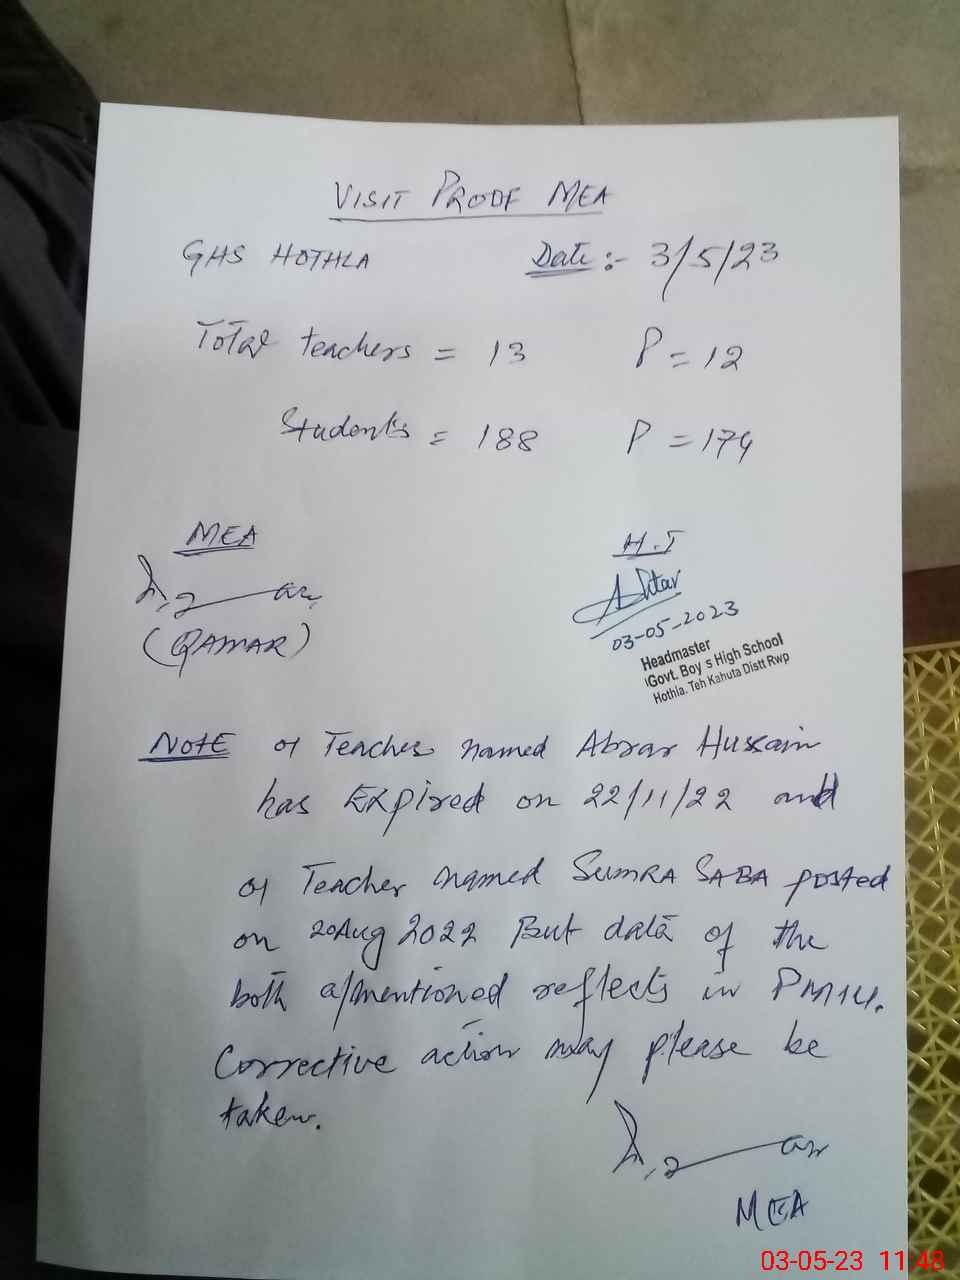 VISIT PROOF MEA
GHS HOTHLA Date :- 3/5/23
Total teachers = 13 P = 12
Students = 188 P = 174
MEA H.T
Ashtar
(QAMAR) 03-05-2023
Headmaster
Govt. Boy s High School
Hothla. Teh Kahuta Distt Rwp
NOTE 01 Teacher named Abrar Hussain
has Expired on 22/11/22 and
01 Teacher named SUMRA SABA posted
on 20Aug 2022 But data of the
both a/mentioned reflects in PMIU.
Corrective action may please be
taken.
MEA
03-05-23 11:48